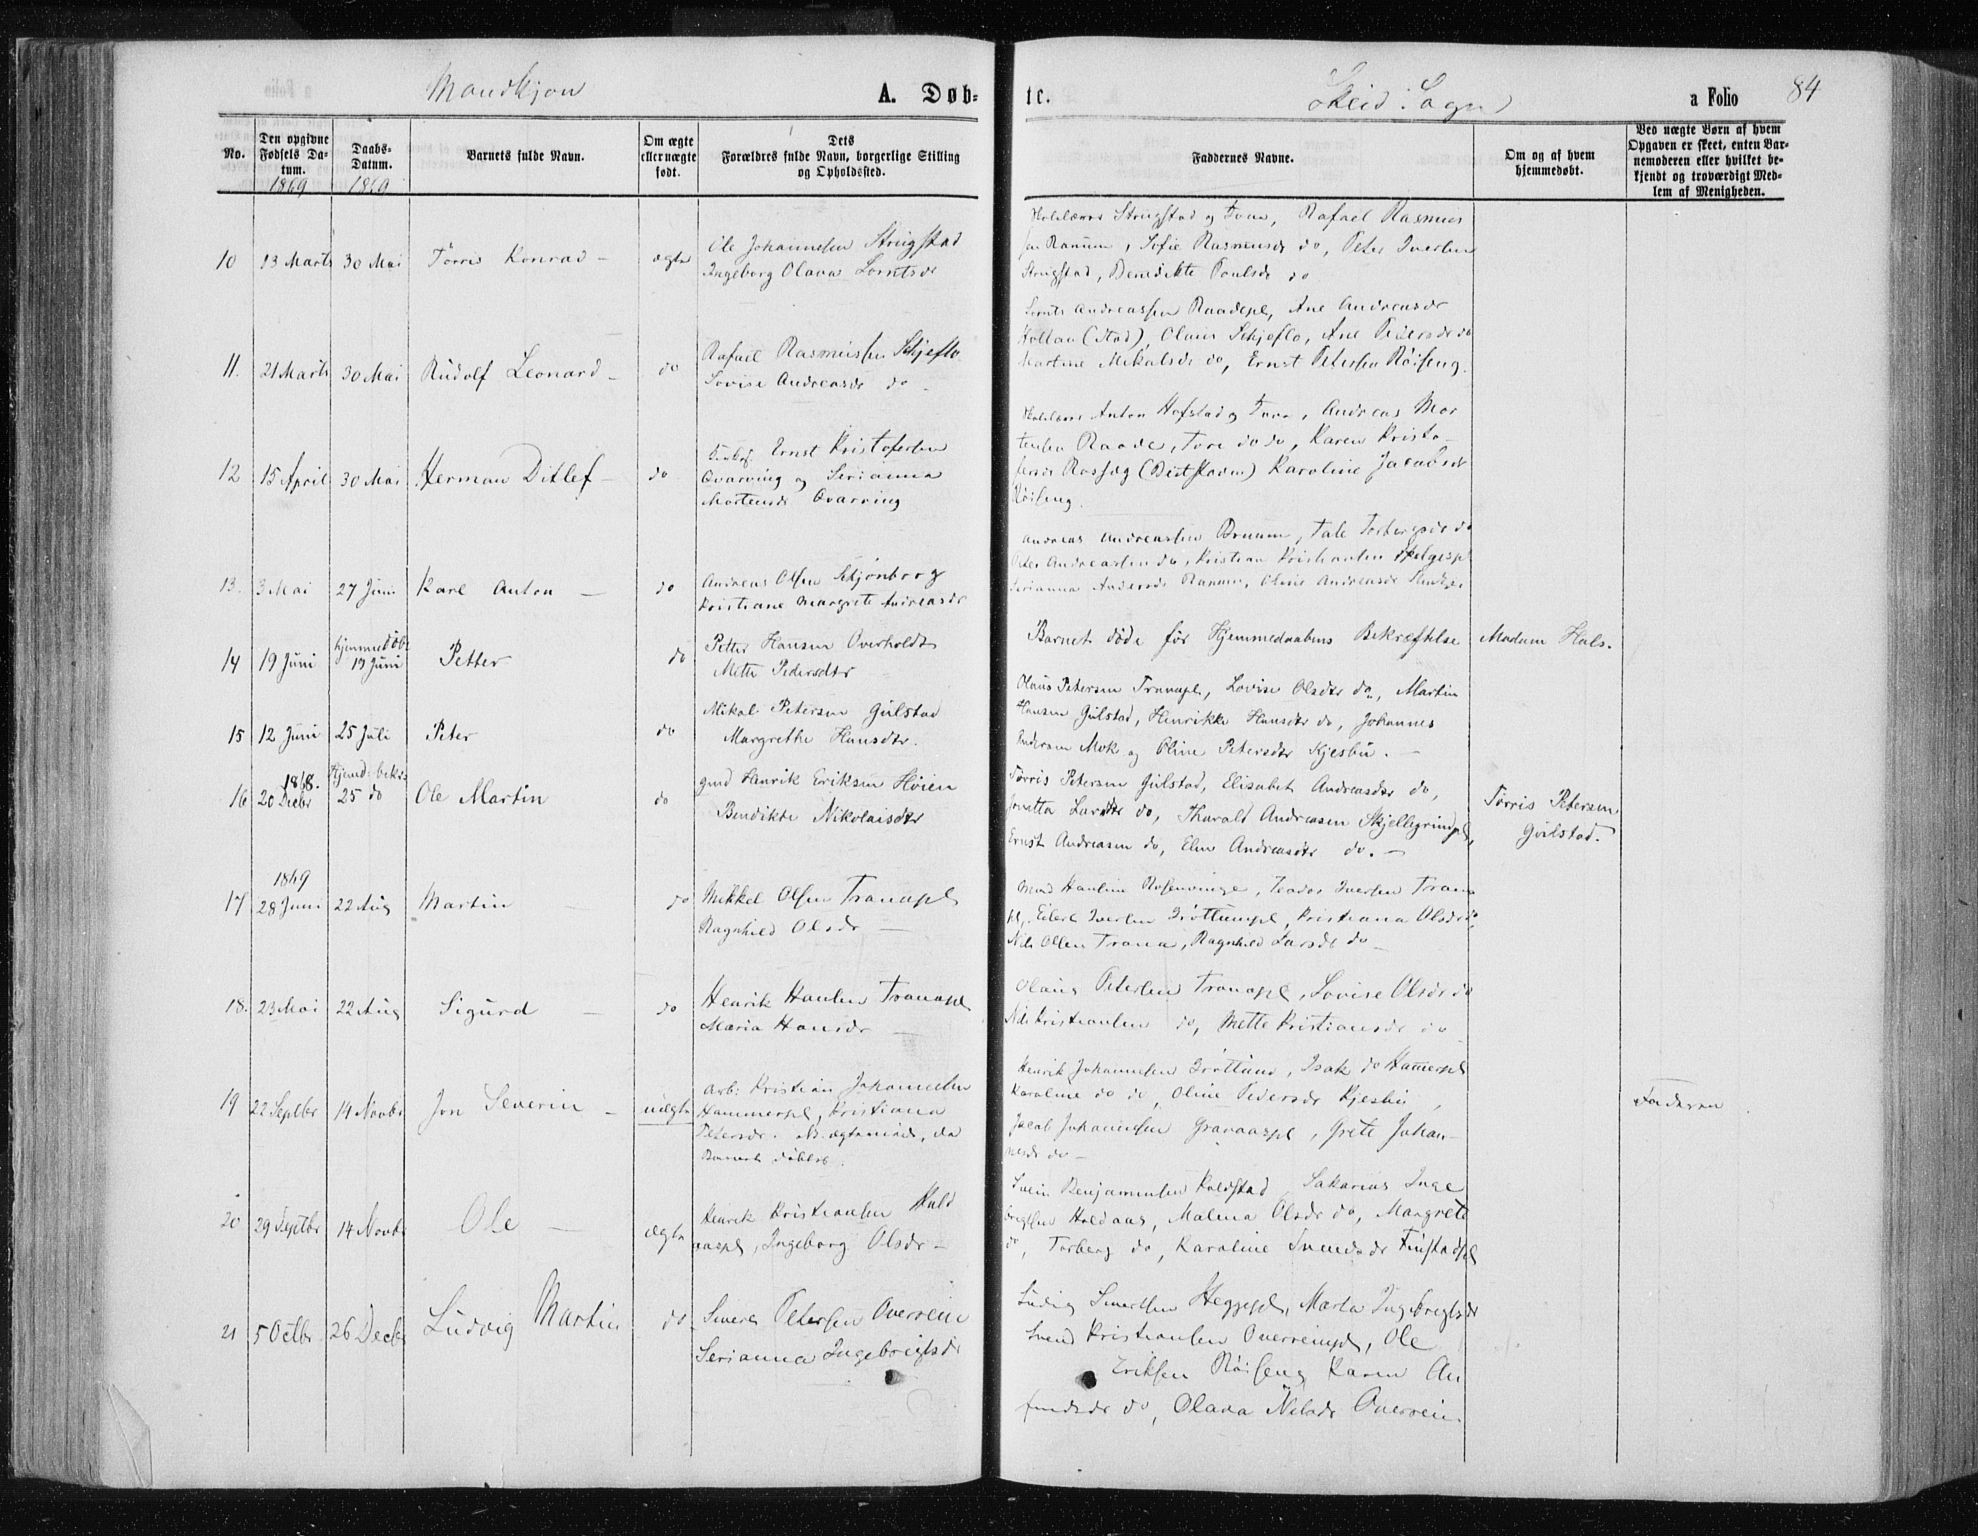 Mandkjøn
A. Døb-
te.
Skeid Sogn
a Folio 84
No.
Den opgivne Fødsels Da-
tum.
1869
Daabs-
Datum.
1869
Barnets fulde Navn.
Om ægte
eller uægte
født.
Dets
Forældres fulde Navn, borgerlige Stilling
og Opholdssted.
Faddernes Navne.
Om og af hvem
hjemmedøbt.
Ved uægte Børn af hvem
Opgaven er skeet, enten Bar-
nemoderen eller hvilket be-
kjendt og troværdigt Med-
lem af Menigheden.
10 13 Marts 30 Mai Tørris Konrad - ægte
Ole Johannesen Strugstad
Ingeborg Olava Lorntsdr
Strugstad og Kone, Rafael Rasmus
sen Ranum, Sofie Rasmusdr do, Peter Iversen
Strugstad, Benedikte Paulsdr do
11. 21 Marts 30 Mai Rudolf Leonard - do
Rafael Rasmussen Skjeflo
Lovise Andreasdr do -
Lornts Andreassen Raadepl, Ane Andreasdr
Hollan (Stod), Olaus Skjeflo, Ane Pedersdr do
Martine Mikalsdr do, Ernst Petersen Røiseng.
12 15 April 30 Mai Herman Ditlef - do
Ernst Kristofersen
Qvarving og Serianna
Mortensdr Qvarving
Anton Hofstad og Kone, Andreas Mor
tensen Raade, Tore do do, Karen Kristo-
fersdr Karoline Jacobsdr
Røiseng.
13. 3 Mai 27 Juni Karl Anton - do
Andreas Olsen Skjønborg
Kristiane Margrete Andreasdr
Andreas Andreassen Bruum, Tale Torbergsdr do
Peter Andreassen do, Kristian Kristiansen
Serianna Andersdr Ranum, Oline Andreasdr
14 19 Juni
hjemmedøbt
19 Juni
Petter do
Petter Hansen Overholdt
Mette Pedersdtr
Barnet døde før Hjemmedaabens Bekræftelse
Madam Hals.
15 12 Juni 25 Juli Peter do
Mikal Petersen Gulstad
Margrethe Hansdtr.
Olaus Petersen Tranapl, Lovise Olsdtr do, Martin
Hansen Gulstad, Henrikke Hansdtr do, Johannes
Andersen Mok og Oline Petersdtr Kjesbu. -
16
1868.
20 Decbr
Hjemd: bekr.
25 do
Ole Martin do
gmd Henrik Eriksen Høien
Bendikte Nikolaisdtr
Tørris Petersen Gulstad, Elisabet Andreasdtr do,
Jonetta Larsdtr do, Tharald Andreasen Skjellegrindpl,
Ernst Andreasen do, Elen Andreasdtr do. -
Tørris Petersen
Gulstad.
17
1869
28 Juni 22 Aug Martin - do
Mikkel Olsen Tranapl
Ragnhild Olsdr -
Hanline Rosenvinge, Teodor Iversen Trana
pl, Eilert Iversen Grøttumpl, Kristiana Olsdr do,
Nils Olsen Trana, Ragnhild Larsdr do -
18. 23 Mai 22 Aug Sigurd - do
Henrik Hansen Tranapl
Maria Hansdr -
Olaus Petersen Tranapl, Lovise Olsdr do
Nils Kristiansen do, Mette Kristiansdr do
19 22 Septbr 14 Novbr Jon Severin - uægte
Arb: Kristian Johannesen
Hammerpl, Kristiana
Petersdr. NB. ægteviede, da
Barnet døbtes.
Henrik Johannesen Grøttum, Isak do Hamerpl
Karoline do do, Oline Pedersdr Kjesbu,
Jacob Johannesen Granaaspl, Grete Johan-
nesdr do -
Faderen
20 29 Septbr 14 Novbr Ole - ægte
Henrik Kristiansen Hald
aaspl, Ingeborg Olsdr -
Svein Benjaminsen Koldstad, Sakarias Inge
brigtsen Haldaas, Malena Olsdr do, Margrete
do, Torberg do, Karoline Svendsdr Finstadpl
21 5 Octbr 26 Decbr Ludvig Martin do
Sivert Petersen Overrein
Serianna Ingebrigtsdr
Ludvig Sivertsen Heggepl, Marta Ingebrigtsdr
Svend Kristiansen Overreinpl, Ole
Eriksen Røiseng Karen An
findsdr do, Olava Nilsdr Overrein.